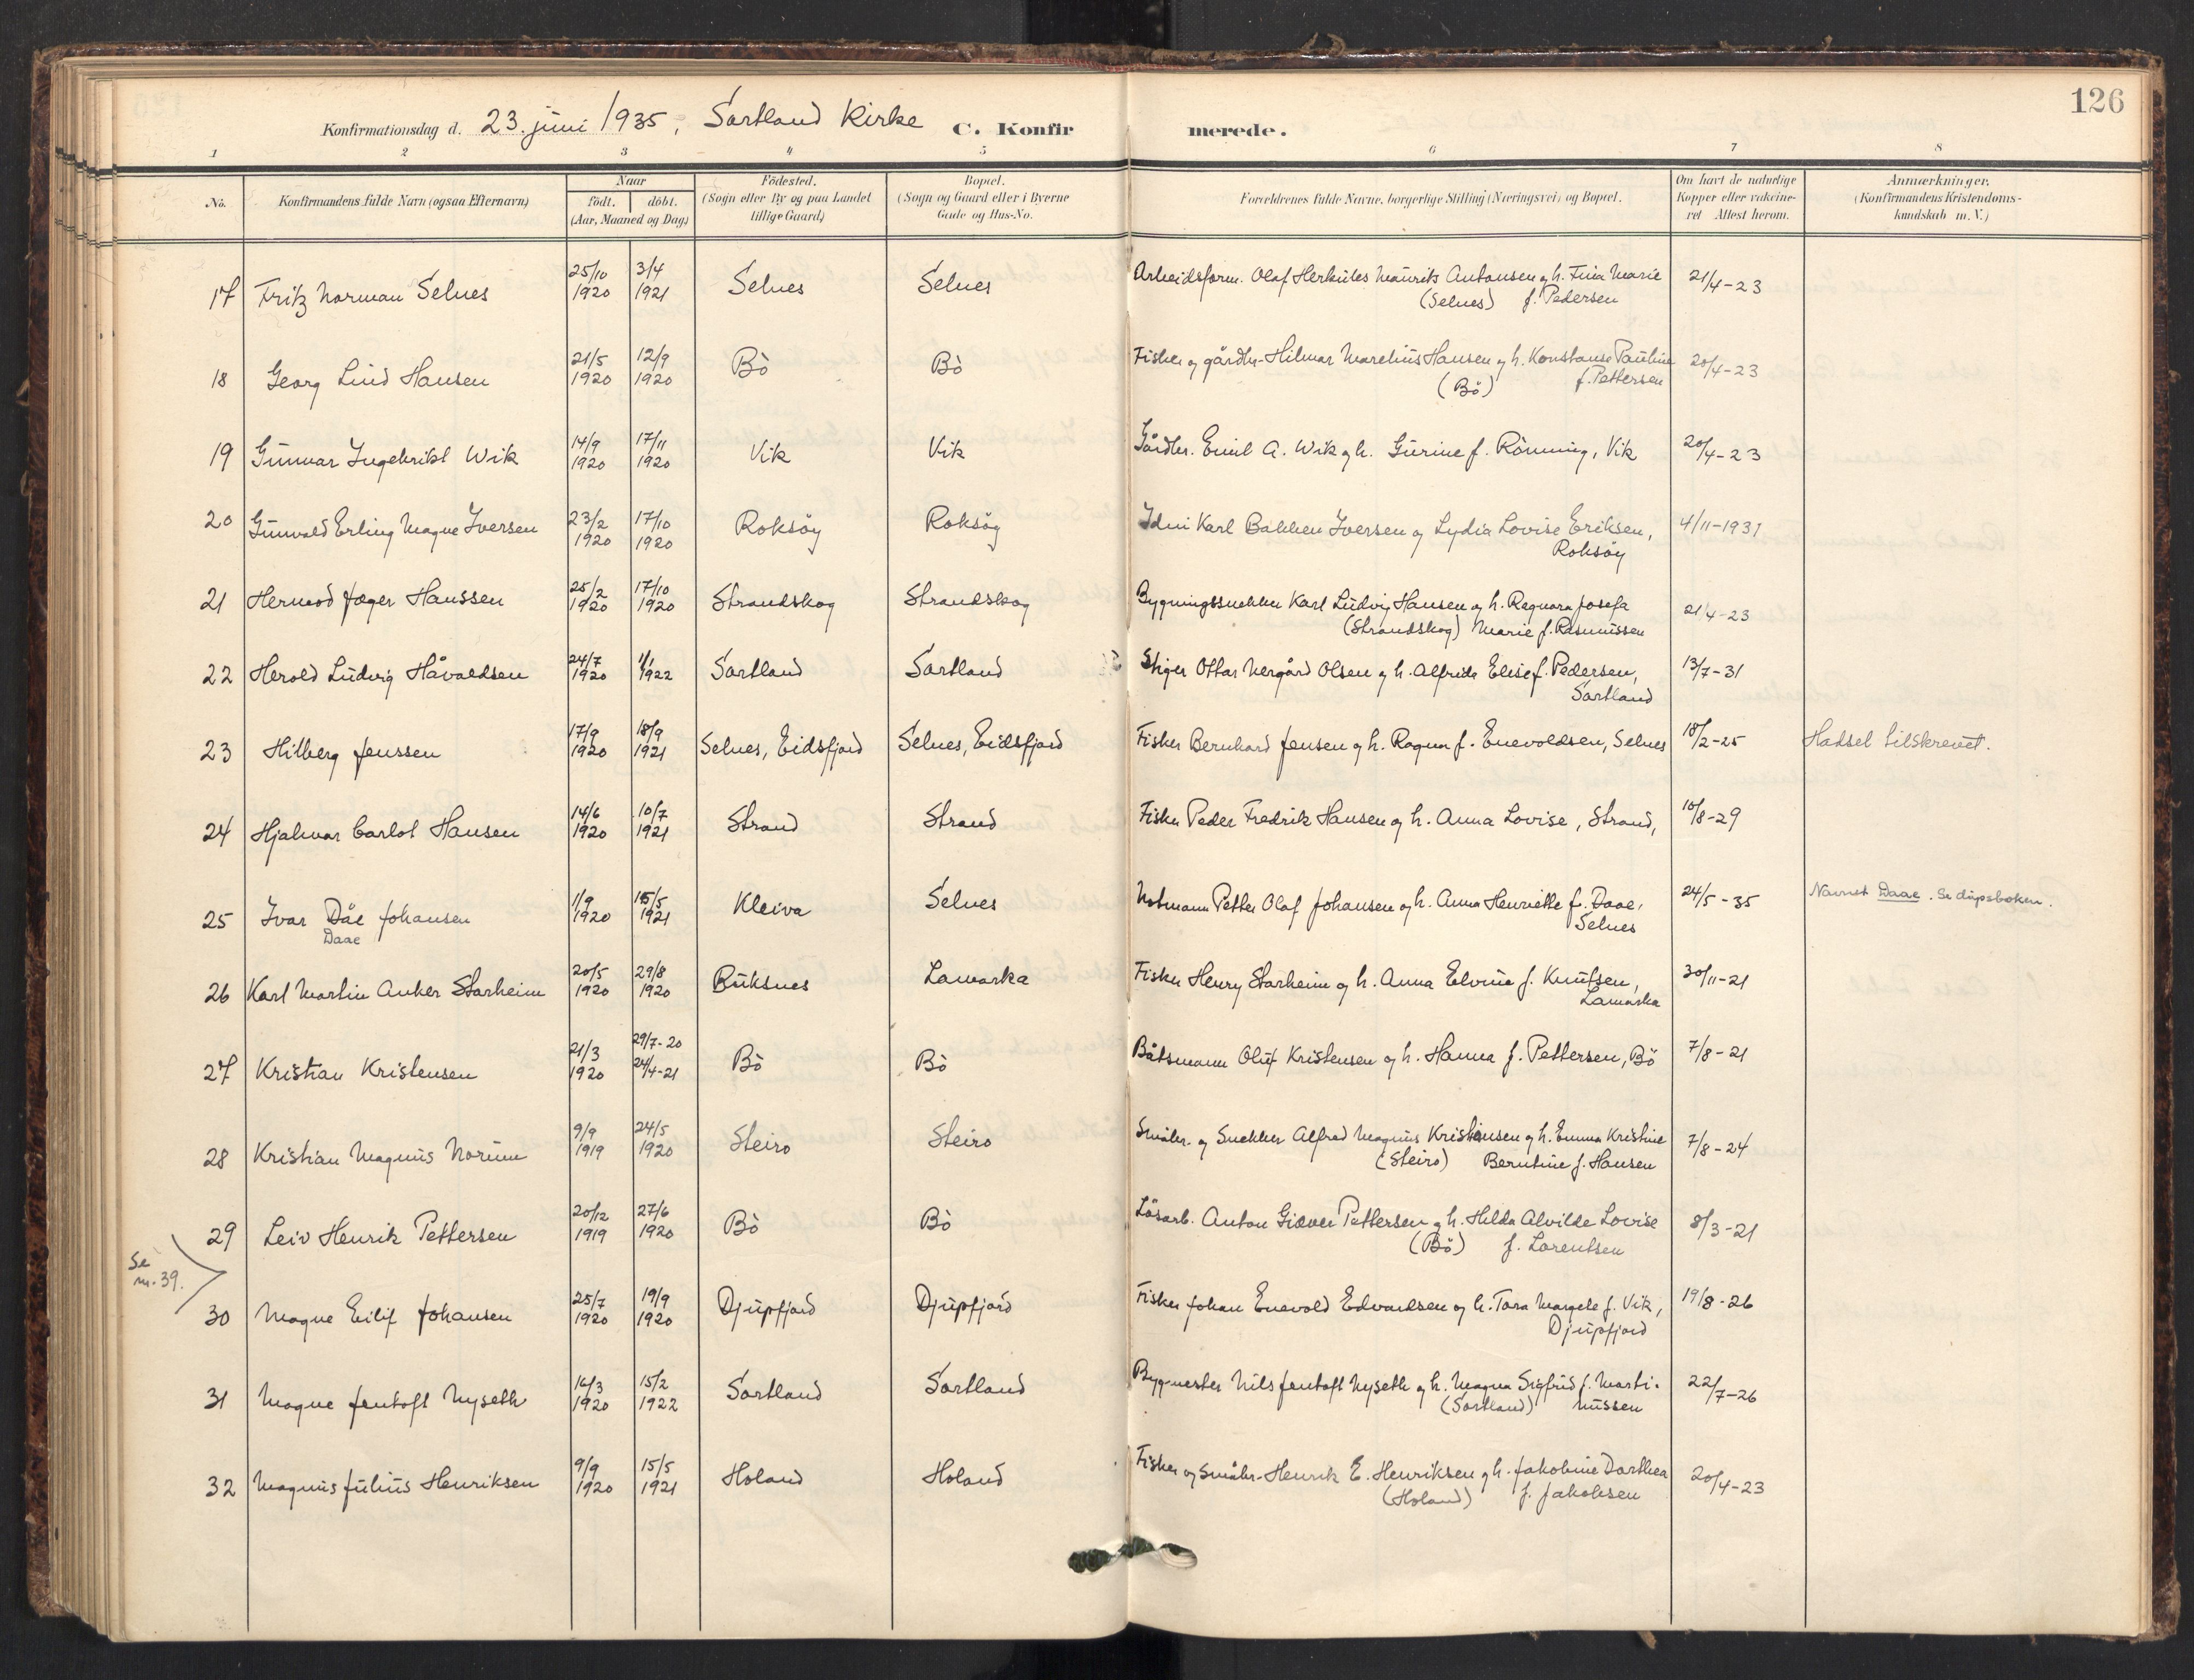 126
Konfirmationsdag d. 23. juni 1935, Sortland Kirke C. Konfirmerede.
1 2 3 4 5 6 7 8
No. Konfirmandens fulde Navn (ogsaa Efternavn) Naar födt. döbt. (Aar, Maaned og Dag) Födested. (Sogn eller By og paa Landet tillige Gaard) Bopæl. (Sogn og Gaard eller i Byerne Gade og Hus-No. Forældrenes fulde Navne, borgerlige Stilling (Næringsvei) og Bopæl. Om havt de naturlige Kopper eller vakcineret Attest herom. Anmærkninger. (Konfirmandens Kristendomskundskab m. V.)
17 Fritz Norman Selnes 25/10 1920 3/4 1921 Selnes Selnes Arbeidsform. Olaf Herkules Maurits Antonsen og h. Fina Marie (Selnes) f. Pedersen 21/4-23
18 Georg Lind Hansen 21/5 1920 12/9 1920 Bö Bö Fisker og gårdbr. Hilmar Marelius Hansen og h. Konstanse Pauline (Bö) f. Pettersen 20/4-23
19 Gunnar Ingebrikt Wik 14/9 1920 17/11 1920 Vik Vik Gårdbr. Emil A. Wik og h. Gurine f. Rönning, Vik 20/4-23
20 Gunvald Erling Magne Iversen 23/2 1920 17/10 1920 Roksöy Roksöy Karl Bakken Iversen og Lydia Lovise Eriksen, Roksöy 4/11-1931
21 Hermod Jæger Hanssen 25/2 1920 17/10 1920 Strandskog Strandskog Bygningssnekker Karl Ludvig Hansen og h. Ragnara Josefa (Strandskog) Marie f. Rasmussen 21/4-23
22 Herold Ludvig Håvaldsen 24/7 1920 1/1 1922 Sortland Sortland Stiger Ottar Nergård Olsen og h. Alfrida Elise f. Pedersen, Sortland 13/7-31
23 Hilberg Jenssen 17/9 1920 18/9 1921 Selnes, Eidsfjord Selnes, Eidsfjord Fisker Bernhard Jensen og h. Ragna f. Enevoldsen, Selnes 18/2-25 Hadsel tilskrevet.
24 Hjalmar Carlot Hansen 14/6 1920 10/7 1921 Strand Strand Fisker Peder Fredrik Hansen og h. Anna Lovise, Strand, 10/8-29
25 Ivar Dåe Johansen 1/9 1920 15/5 1921 Kleiva Selnes Notmann Petter Olaf Johansen og h. Anna Henriette f. Daae, Selnes 24/5-35 Navnet Daae. Se dåpsboken.
Daae
26 Karl Martin Anker Starheim 20/5 1920 29/8 1920 Buksnes Lamarka Fisker Henry Starheim og h. Anna Elvine f. Knutsen, Lamarka 30/11-21
27 Kristian Kristensen 21/3 1920 29/7-20 24/4-21 Bö Bö Båtsmann Oluf Kristensen og h. Hanna f. Pettersen, Bö 7/8-21
28 Kristian Magnus Norum 9/9 1919 24/5 1920 Steiro Steiro Småbr. og Snekker Alfred Magnus Kristiansen og h. Emma Kristine (Steiro) Berntine f. Hansen 7/8-24
29 Leiv Henrik Pettersen 20/12 1919 27/6 1920 Bö Bö Lösarb. Anton Giæver Pettersen og h. Hilda Alvilde Lovise (Bö) f. Lorentsen 8/3-21
Se nr. 39.
30 Magne Eilif Johansen 25/7 1920 19/9 1920 Djupfjord Djupfjord Fisker Johan Enevold Edvardsen og h. Tora Margete f. Vik, Djupfjord 19/8-26
31 Magne Jentoft Nyseth 16/3 1920 15/2 1922 Sortland Sortland Bygmester Nils Jentoft Nyseth og h. Magna Sigfrid f. Marti- (Sortland) nussen 22/7-26
32 Magnus Julius Henriksen 9/9 1920 15/5 1921 Holand Holand Fisker og Småbr. Henrik E. Henriksen og h. Jakobine Dorthea (Holand) f. Jakobsen 20/4-23